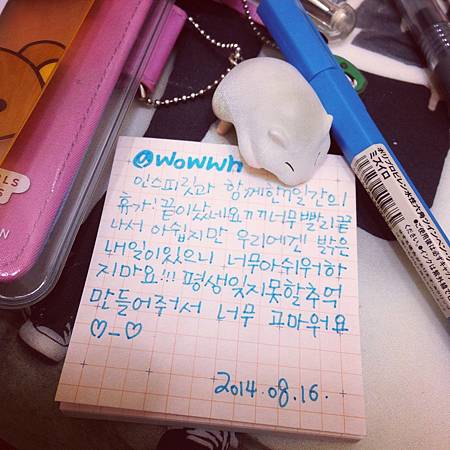 @wowwh
인스피릿과 함께한 7일간의
휴가! 끝이났네요ㄲㄲ너무빨리끝
나서 아쉽지만 우리에겐 밝은
내일이있으니 너무아쉬워하
지마요!!! 평생잊지못할추억
만들어주어서 너무 고마워요
♡_♡
2014.08.16.
ミズイロ